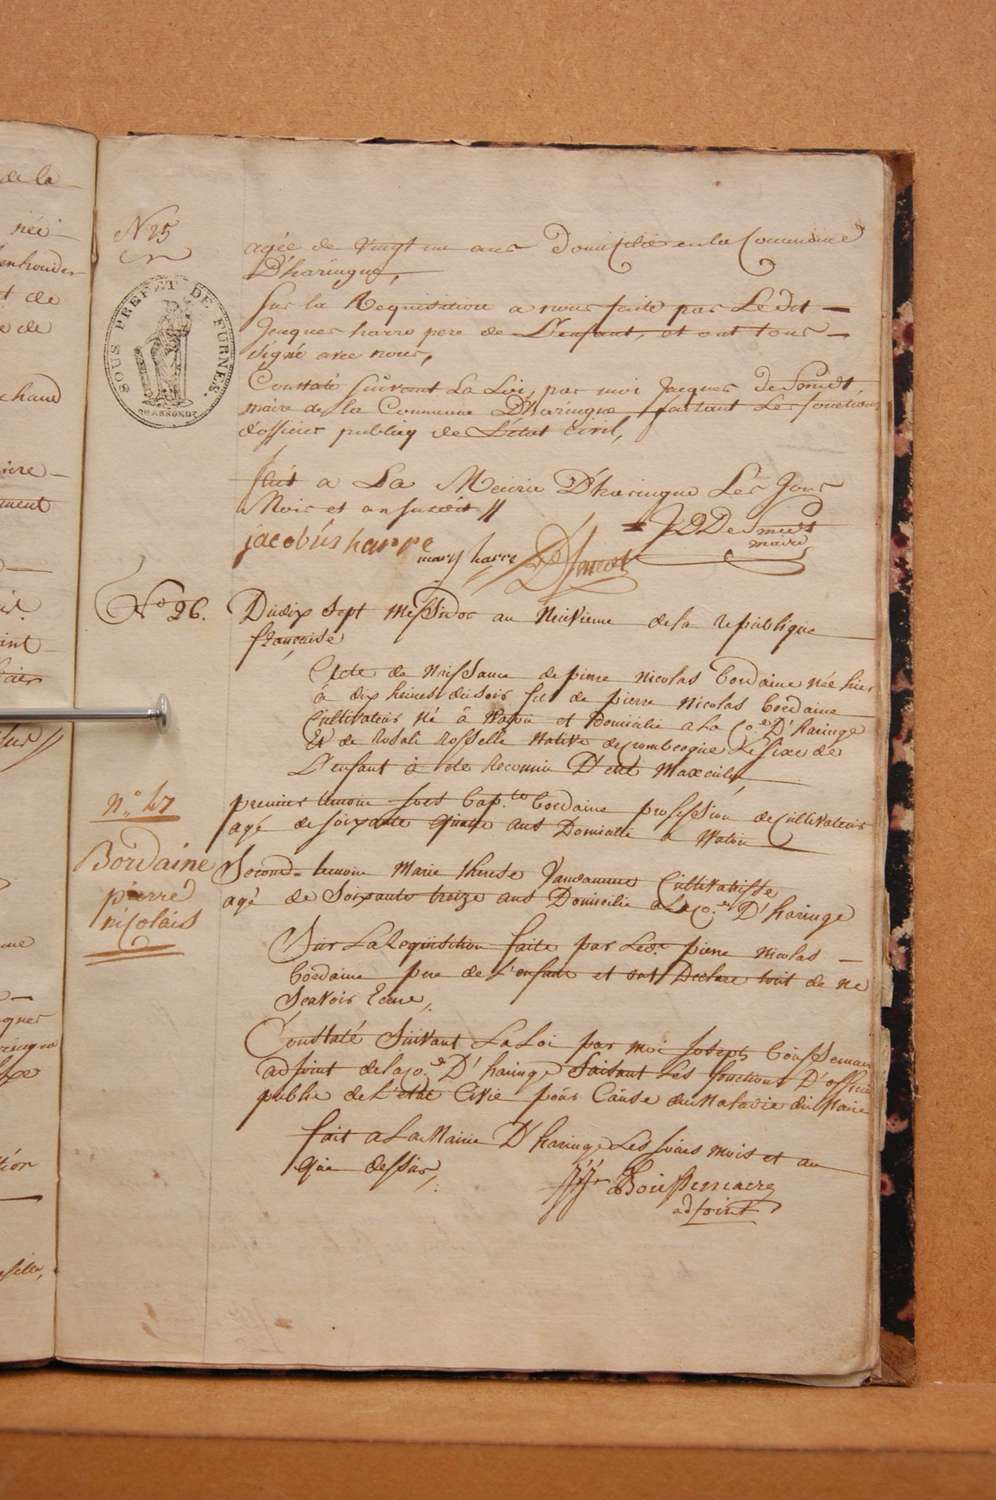 N 25
SOUS PREFET DE FURNES.
agée de vingt un ans Domicilié en la Commune
D'haringue,
Sur la Requisition a nous faite par Le dit
Jacques harre pere de L'enfant, et ont tous
signé avec nous,
Constaté suivant La Loi, par moi Jacques De Smidt
maire de la Commune D'haringue, faisant Les fonctions
d'officier publicq de L'état Civil,
fait a La Meirie D'haringue Les Jour
Mois et an susdit //
jacobús harre
JDDe Smidt
maire
mary harre
No 26.
Du dix sept messidor an Neuvieme de la republique
française
Acte de Naissance de pierre nicolas bordaine née hier
à dix heures du soir fil de pierre nicolas bordaine
Cultivateur Né à Watou et Domicilié a La Co.e D'haringe
Et de Rosali Rosselle Native de crombecque Le sixe de
L'enfant à eté Reconnu D'etre Masculin
premier temoin Jces bap.te bordaine profession de Cultivateur
agé de soixante quatre ans Domicilié a Watou
Second temoin Marie therese Vandamme Cultivatrisse
agé de Soixante treize ans Domicilié a La Co.e D'haringe
n.o 47
Bordaine
pierre
nicolais
Sur La Requisition faite par Ledt. pierre nicolas
bordaine pere de L'enfant et ont Declare tout de ne
Scavoir Ecrire,
Constaté Suivant La Loi par moi Joseph boussemaer
adjoint de la Co.e D'haringe faisant Les fonctions D'officie
publie de L'etat Civie pour Cause du Maladie du Maire
fait a La Mairie D'haringe Les jours mois et an
que dessus,
Boussemaere
adjoint